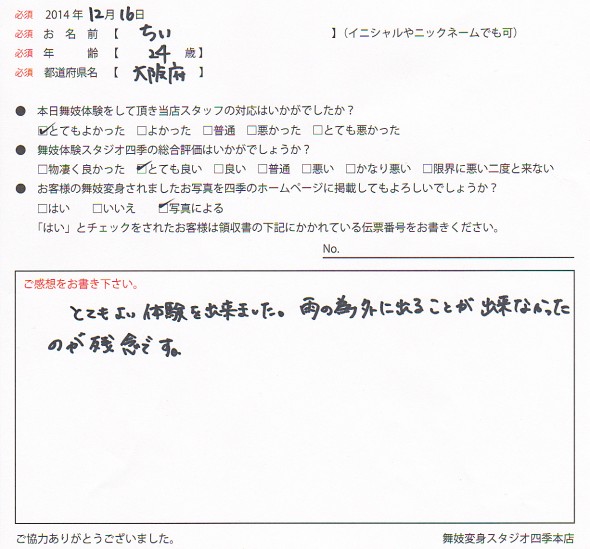 必須 2014年 12月 16日
必須 お名前【 ちい 】（イニシャルやニックネームでも可）
必須 年齢【 24 歳】
必須 都道府県名【 大阪府 】
● 本日舞妓体験をして頂き当店スタッフの対応はいかがでしたか？
☑とてもよかった □よかった □普通 □悪かった □とても悪かった
● 舞妓体験スタジオ四季の総合評価はいかがでしょうか？
□物凄く良かった ☑とても良い □良い □普通 □悪い □かなり悪い □限界に悪い二度と来ない
● お客様の舞妓変身されましたお写真を四季のホームページに掲載してもよろしいでしょうか？
□はい □いいえ ☑写真による
「はい」とチェックをされたお客様は領収書の下記にかかれている伝票番号をお書きください。
No.
ご感想をお書き下さい。
とてもよい体験を出来ました。雨の為外に出ることが出来なかった
のが残念です。
ご協力ありがとうございました。 舞妓変身スタジオ四季本店